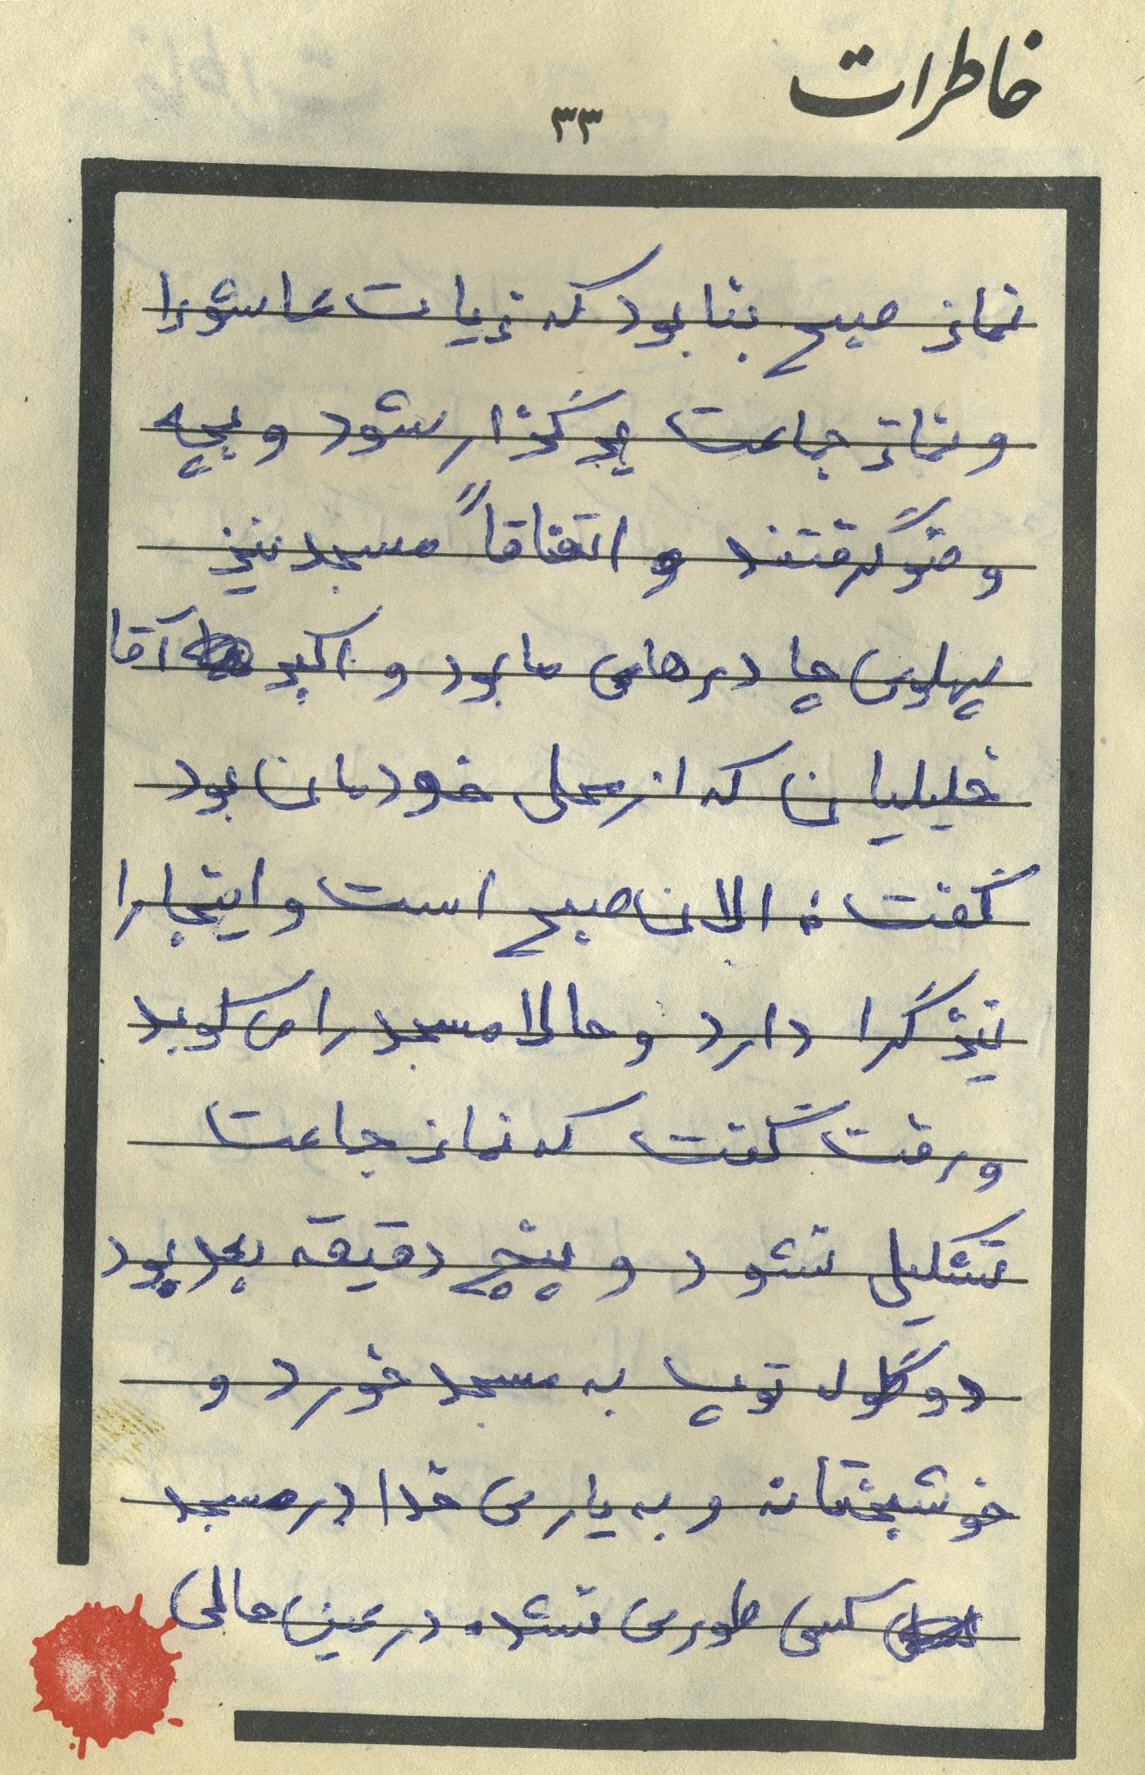 خاطرات
۳۳
نماز صبح بنا بود که زیارت عاشورا
و نماز جماعت برگذار شود و بچه
وضو گرفتند و اتفاقاً مسجد نیز
پهلوی چادرهای ما بود و اکبر آقا
خلیلیان که از محلی خودمان بود
گفت: الان صبح است و اینجا را
نیز گرا دارد و حالا مسجد را می کوبد
و رفت گفت که نماز جماعت
تشکیل نشود و پنج دقیقه بعد بود
دو گلوله توپ به مسجد خورد و
خوشبختانه و به یاری خدا در مسجد
کسی طوری نشده در عین حالی